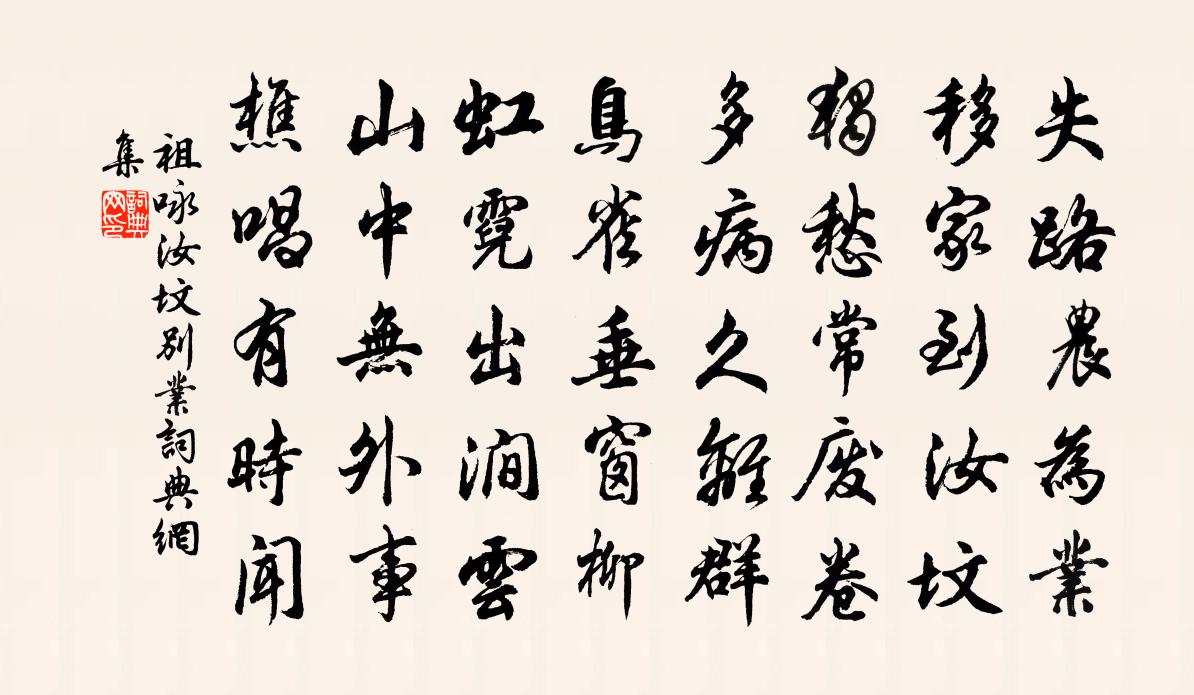 失路農為業
移家到汝墳
獨愁常廢卷
多病久離群
鳥雀垂窗柳
虹霓出澗雲
山中無外事
樵唱有時聞
祖咏汝墳別業詞典網
集
詞典網印